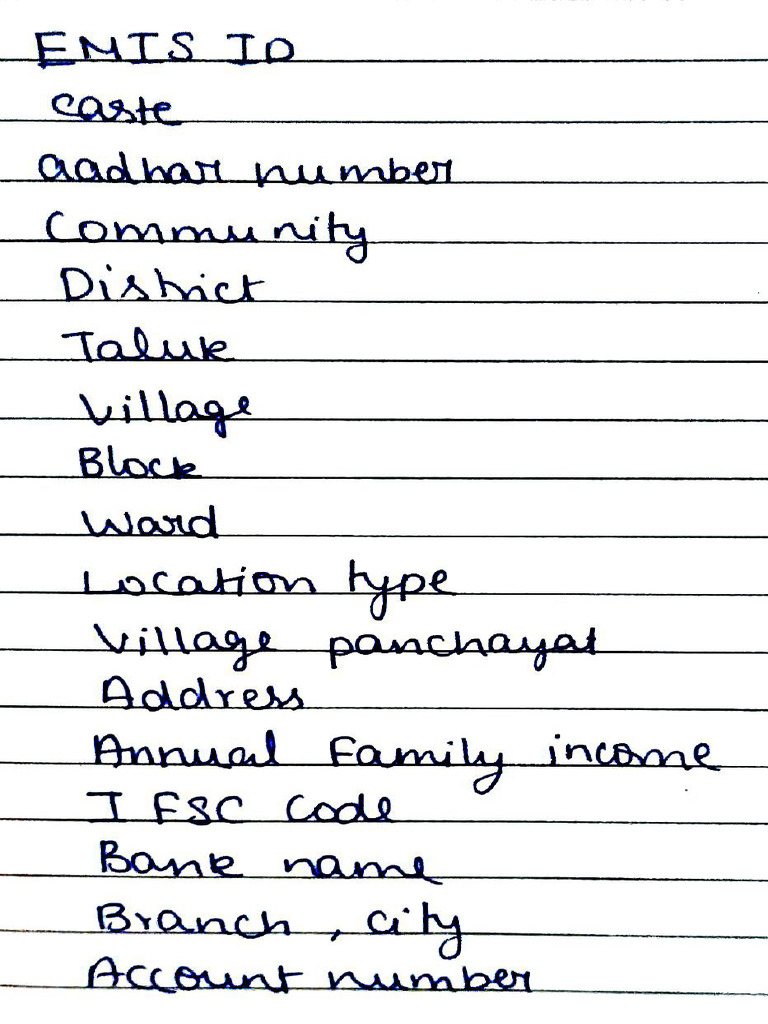 EMIS ID
caste
aadhar number
Community
District
Taluk
Village
Block
Ward
Location type
Village panchayat
Address
Annual Family income
IFSC Code
Bank name
Branch, city
Account number